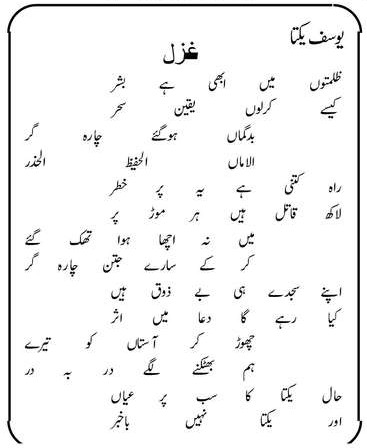 یوسف یکتا
غزل
ظلمتوں میں ابھی ہے بشر
کیسے کرلوں یقین سحر
بدگماں ہوگئے چارہ گر
الاماں الحفیظ الحذر
راہ کتنی ہے یہ پر خطر
لاکھ قاتل ہیں ہر موڑ پر
میں نہ اچھا ہوا تھک گئے
کر کے سارے جتن چارہ گر
اپنے سجدے ہی بے ذوق ہیں
کیا رہے گا دعا میں اثر
چھوڑ کر آستاں کو تیرے
ہم بھٹکنے لگے در بہ در
حال یکتا کا سب پر عیاں
اور یکتا نہیں باخبر